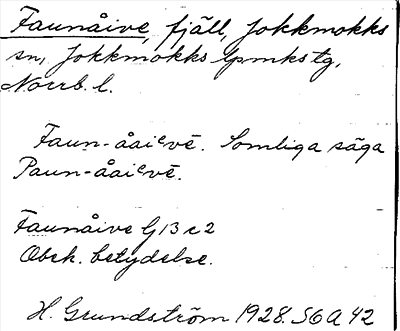 Faunåive, fjäll, Jokkmokks
sn, Jokkmokks lpmkstg,
Norrb. l.
Faun-åaiᵉvē. Somliga säga
Paun-åaiᵉvē.
Faunåive G 13 c 2
Obek. betydelse.
H. Grundström 1928. S6A 42